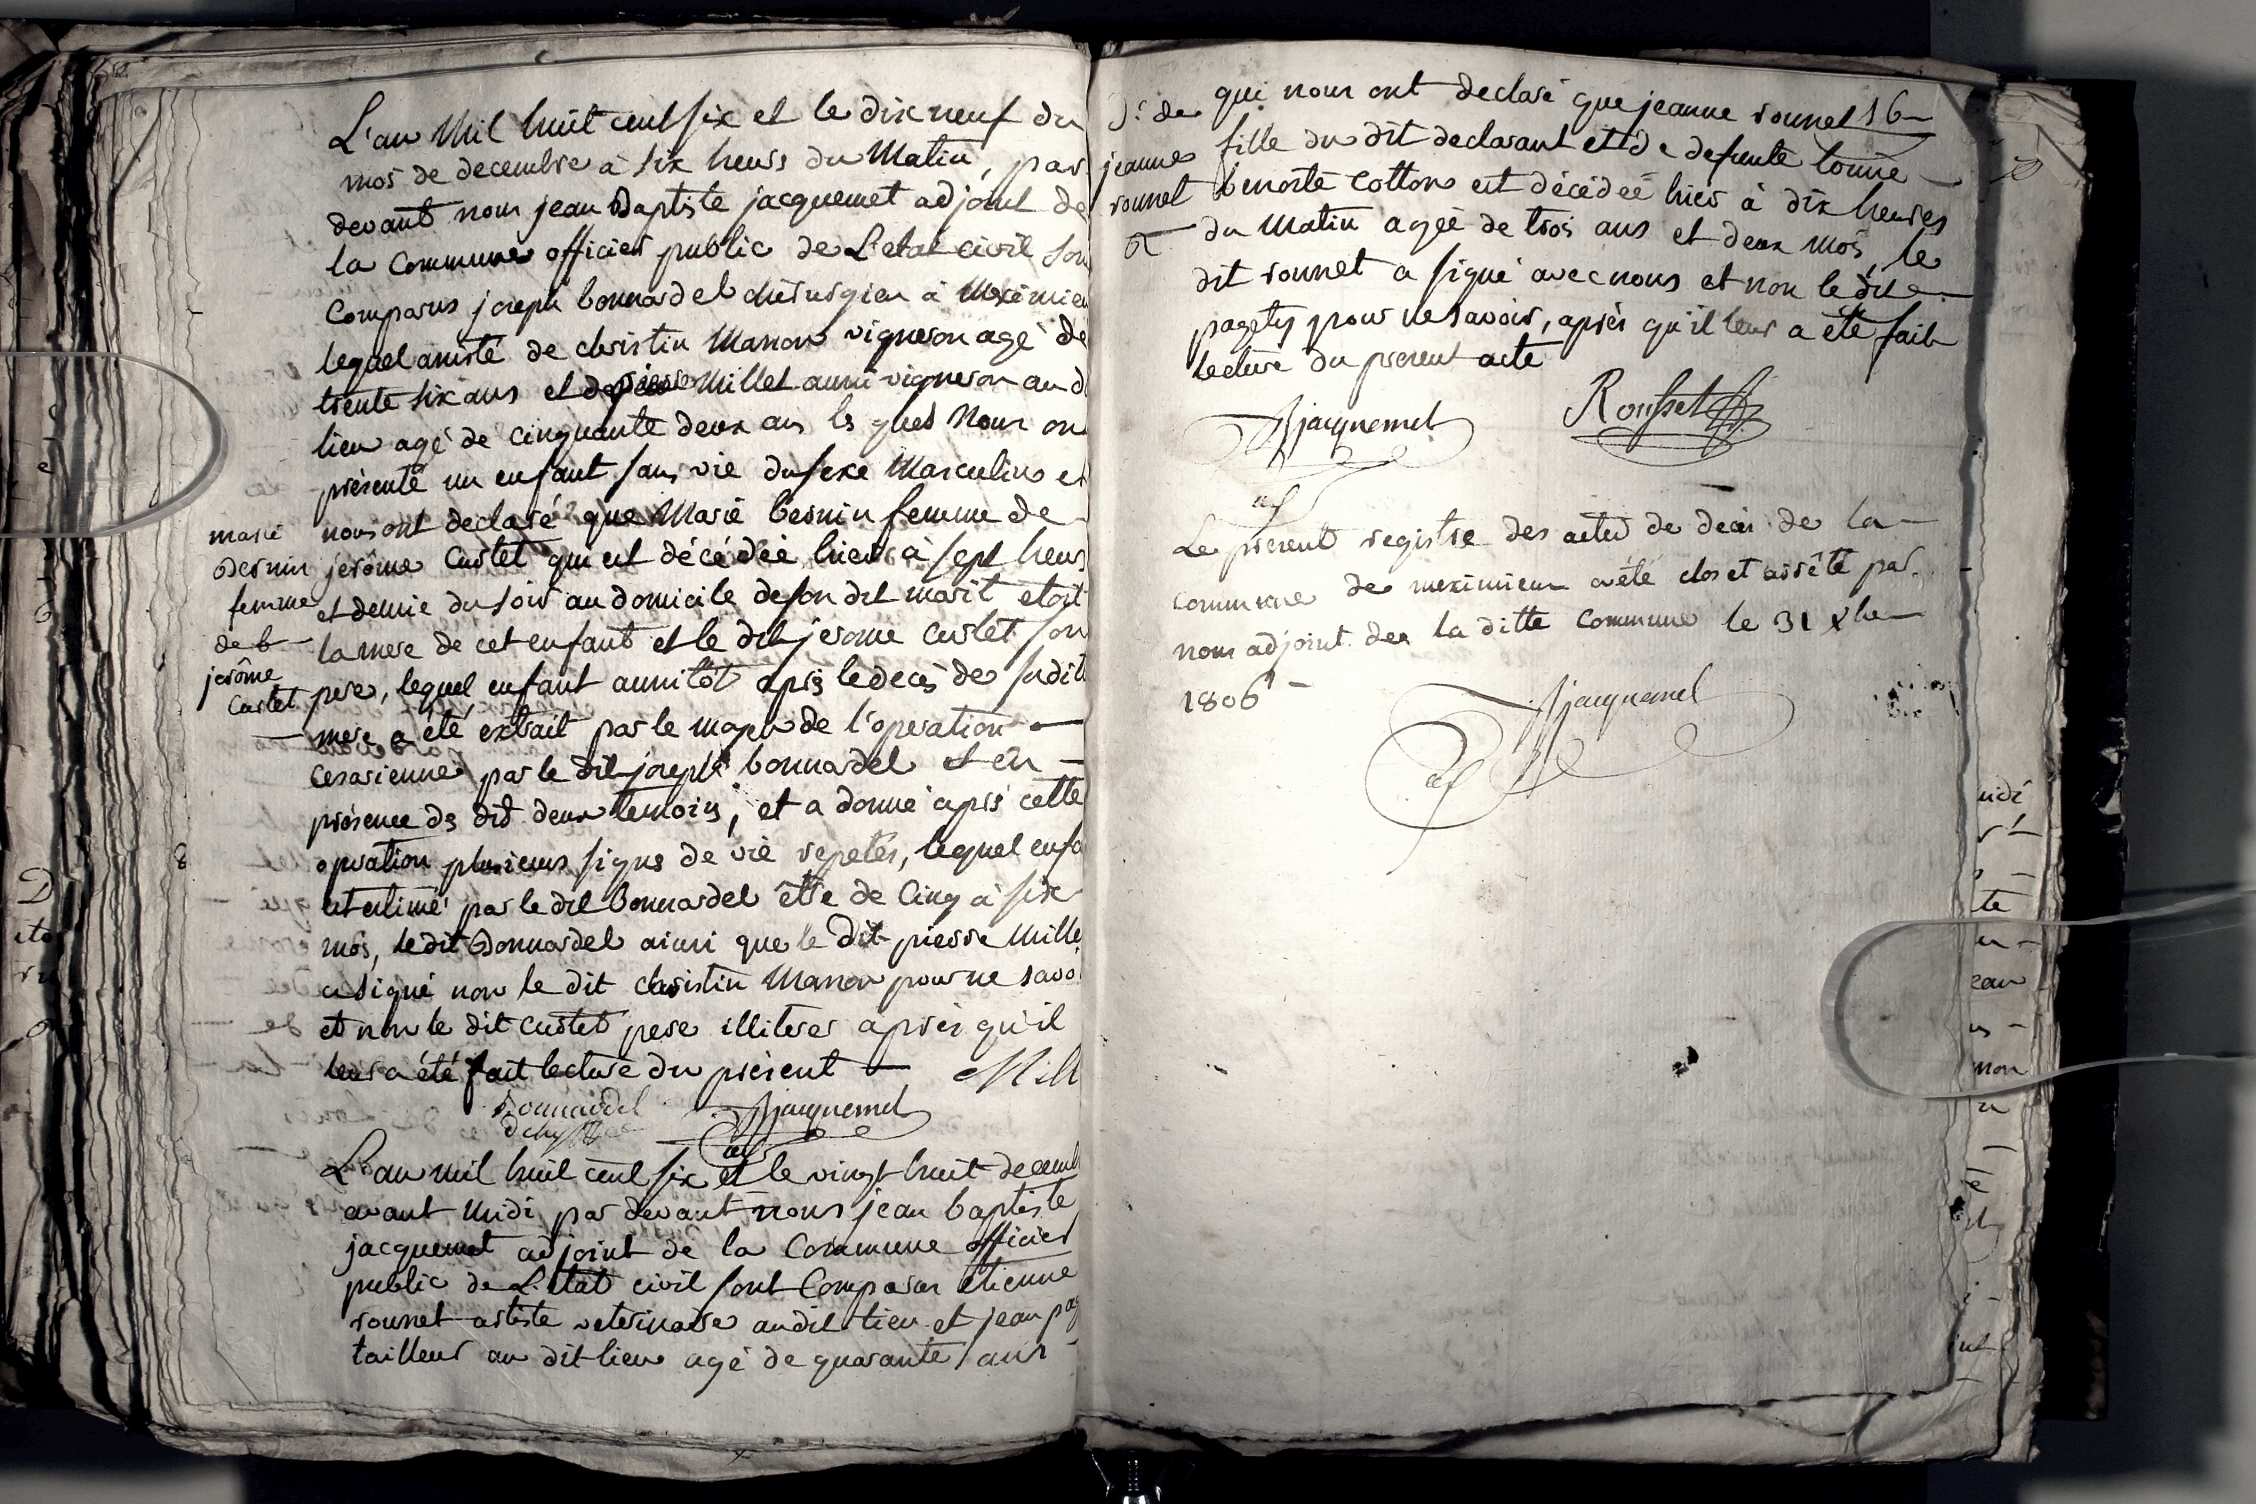 L'an Mil huit cent six et le dix neuf du
mois de decembre à six heurs du Matin, par
devant nous jean Baptiste jacquemet adjoint de
la Commune officier public de L'etat civil son
Comparus joseph bonnardel chirurgien à Meximieu
lequel assisté de christin Manon vigneron agé de
trente six ans et de pierre Millet aussi vigneron au d
lieu agé de cinquante deux ans ls quels Nous on
présenté un enfant sans vie du sexe Masculin et
nous ont declaré que Marie bernin femme de
jérôme Curtet qui est décédée hier à sept heurs
et demie du soir au domicile de son dit marit etoit
la mere de cet enfant et le dit jerome Curtet son
pere, lequel enfant aussitôt après le decès de sudit
mere a été extrait par le moyen de l'operation
Cesarienne par le dit joseph bonnardel et en
présence ds dit deux temoins, et a donné après cette
opération plusieurs signes de vie repetés, lequel enfa
est estimé par le dit bonnardel être de Cinq à six
mois, le dit Bonnardel ainsi que le dit pierre Mille
a signé non le dit christin Manon pour ne savoi
et non le dit Curtet pere illiteres après qu'il
leur a été fait lecture du présent
marie
Bernin
femme
de
jerôme
Curtet
Mill
Bonnardel
Jjacquemet
L'an mil huit cent six et le vingt huit decemb
avant midi par devant nous jean baptiste
jacquemet adjoint de la Commune officier
public de L'etat civil sont Comparus etienne
rousset artiste veterinaire au dit lieu et jean pag
tailleur au dit lieu agé de quarante ans
qui nous ont declaré que jeanne rousset 16
fille du dit declarant et de defunte
benoite Cotton est décédée hier à dix heures
du Matin agée de trois ans et deux mois, le
dit rousset a signé avec nous et non le dit
pagety pour ne savoir, après qu'il leur a été fait
lecture du present acte
D. de
jeanne
rousset
Jjacquemet
Rousset
adj
Le present registre des actes de decès de la
commune de meximieux a été clos et arrêté par
nous adjoint de la ditte Commune le 31 Xbre
1806
Jjacquemet
adj